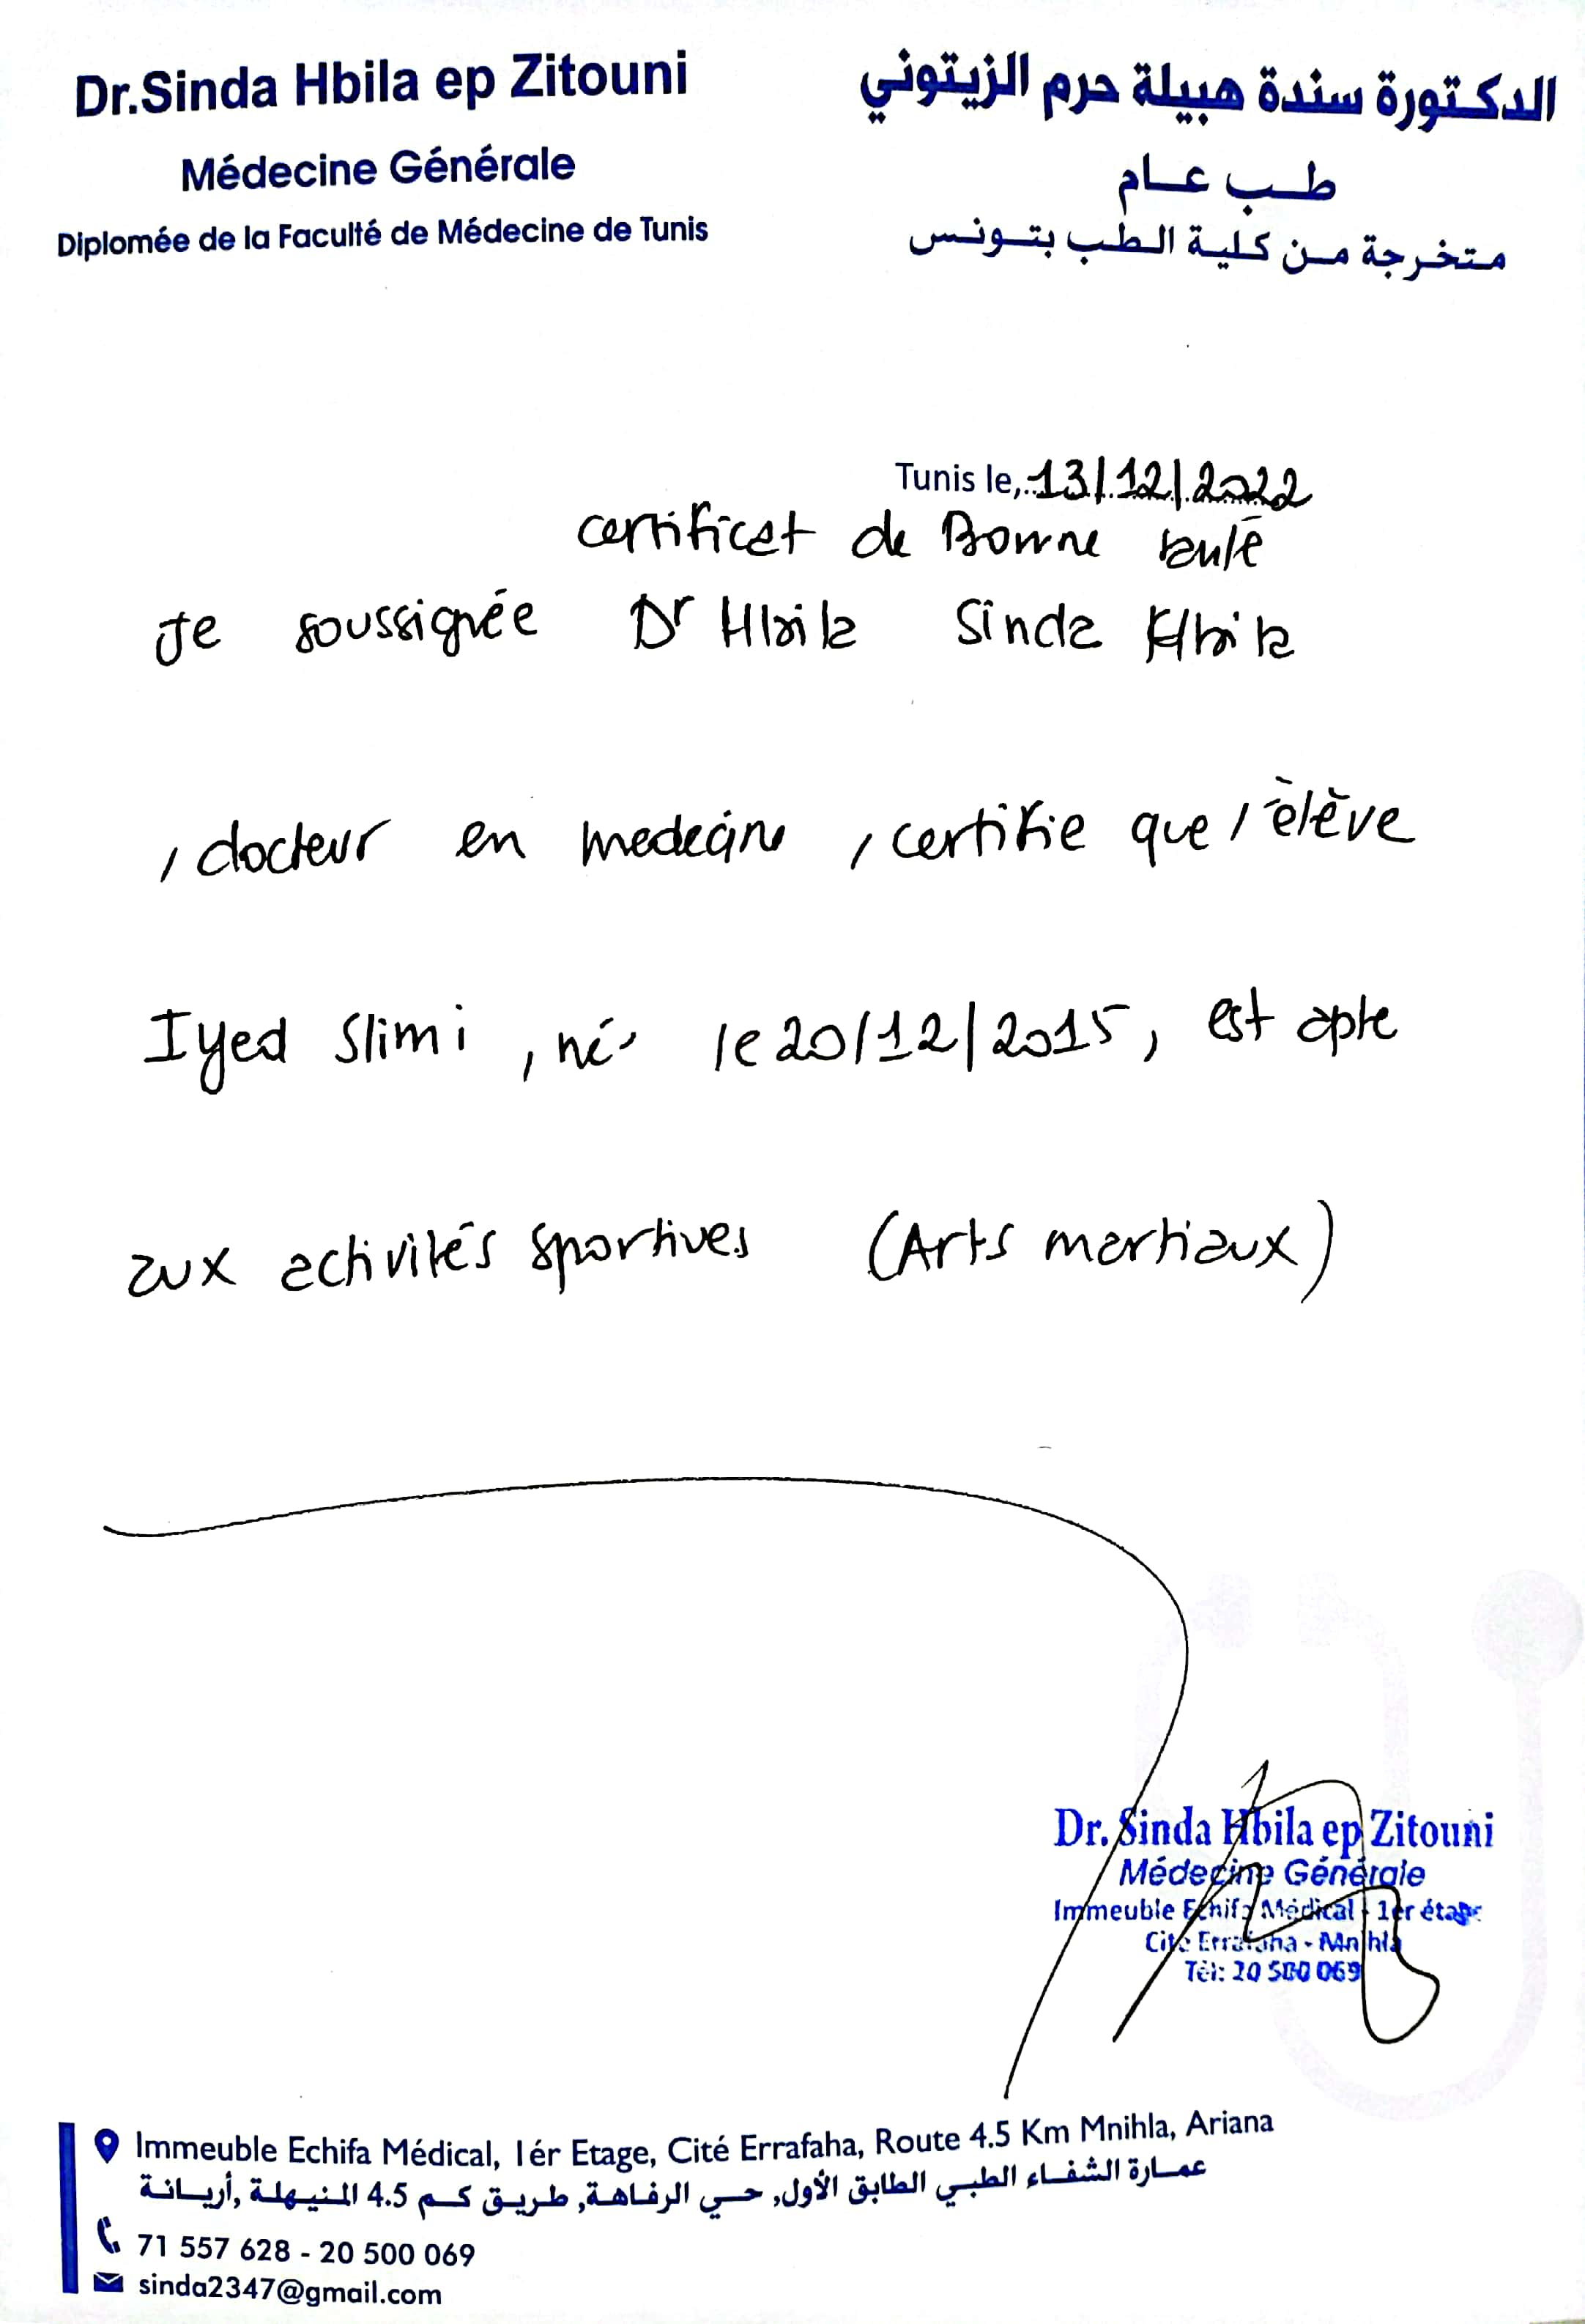 Dr.Sinda Hbila ep Zitouni
Médecine Générale
Diplomée de la Faculté de Médecine de Tunis
الدكتورة سندة هبيلة حرم الزيتوني
طب عام
متخرجة من كلية الطب بتونس
Tunis le, 13/12/2022
certificat de Bonne santé
Je soussignée Dr Hbila Sinda Hbila
, docteur en medecine, certifie que l'élève
Iyed Slimi, né le 20/12/2015, est apte
aux activités sportives (Arts martiaux)
Dr. Sinda Hbila ep Zitouni
Médecine Générale
Immeuble Echifa Médical - 1er étage
Cité Errafaha - Mnihla
Tél: 20 500 069
Immeuble Echifa Médical, 1ér Etage, Cité Errafaha, Route 4.5 Km Mnihla, Ariana
عمارة الشفاء الطبي الطابق الأول, حي الرفاهة, طريق كم 4.5 المنيهلة ,أريانة
71 557 628 - 20 500 069
sinda2347@gmail.com